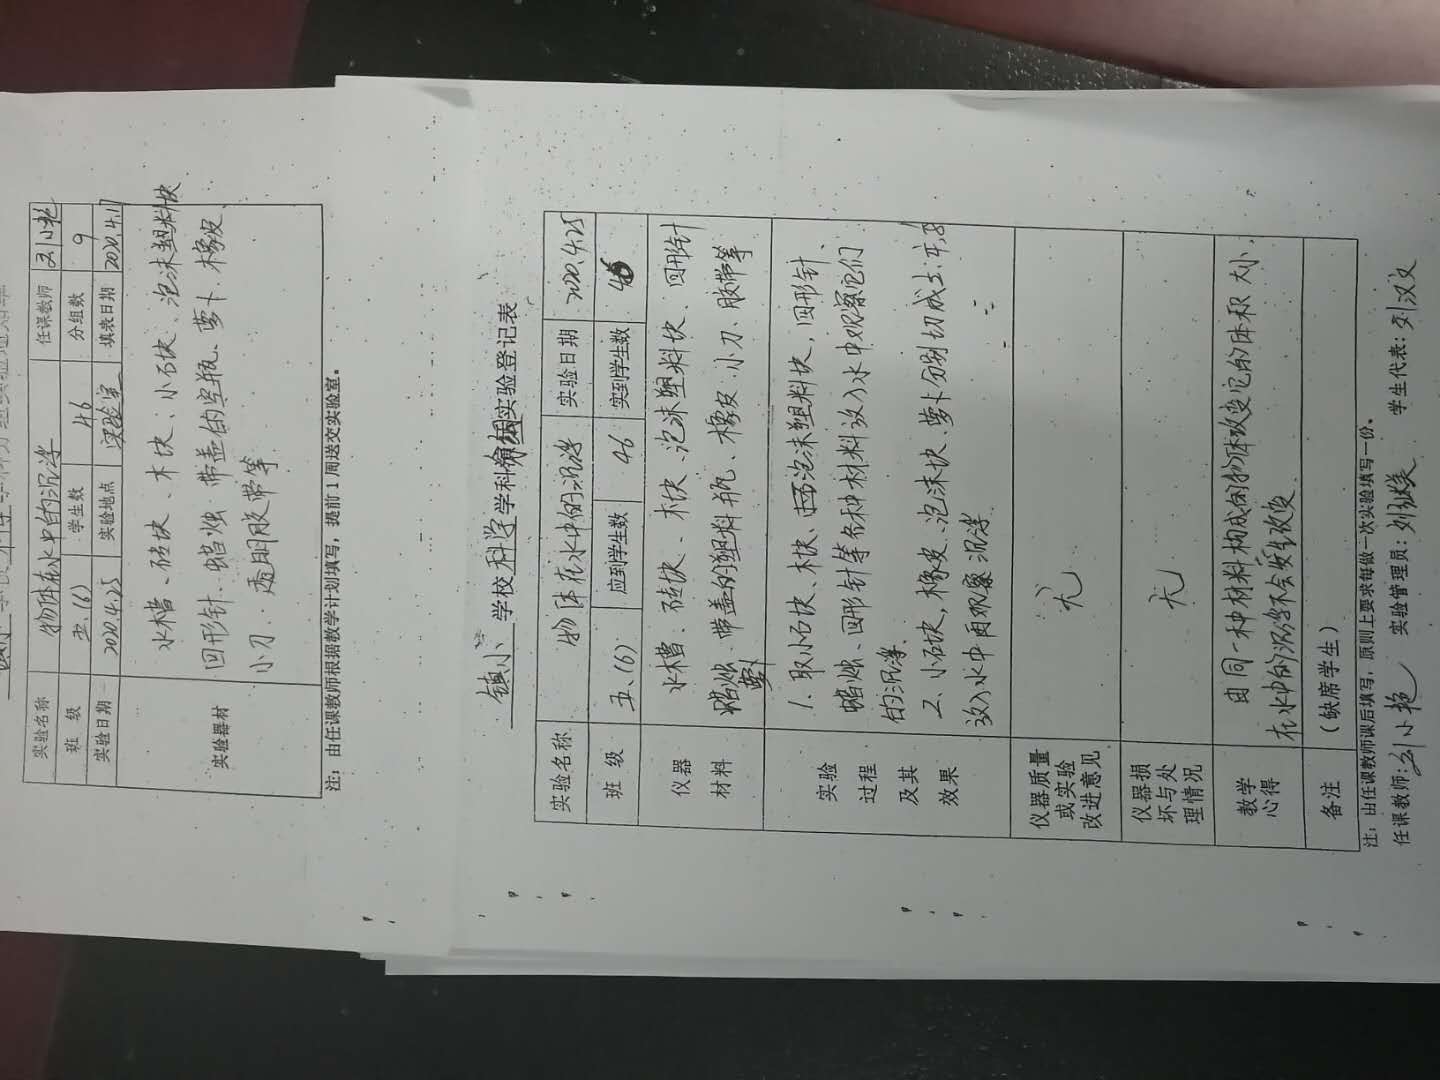 实验名称 物体在水中的沉浮 任课教师 刘小艳
班 级 五.(6) 学生数 46 分组数 9
实验日期 2020.4.25 实验地点 实验室 填表日期 2020.4.17
实验器材
水槽、砖块、木块、小石块、泡沫塑料块
回形针、蜡烛、带盖的空瓶、萝卜、橡皮、
小刀、透明胶带等
注：由任课教师根据教学计划填写，提前1周送交实验室。
镇小 学校 科学 学科 实验登记表
实验名称 物体在水中的沉浮 实验日期 2020.4.25
班 级 五.(6) 应到学生数 46 实到学生数 46
仪器
材料
水槽、砖块、木块、泡沫塑料块、回形针
蜡烛、带盖的塑料瓶、橡皮、小刀、胶带等
萝卜
实验
过程
及其
效果
1. 取小石块、木块、泡沫塑料块，回形针、
蜡烛、回形针等各种材料放入水中观察它们
的沉浮、
2、小砖块，橡皮、泡沫块、萝卜分别切成
放入水中再观察沉浮
仪器质量
或实验
改进意见
无
仪器损
坏与处
理情况
无
教学
心得
由同一种材料构成的物体改变它的体积大小，
在水中的沉浮不会发生改变
备注
（缺席学生）
注：由任课教师课后填写，原则上要求每做一次实验填写一份。
任课教师：刘小艳 实验管理员：刘继 学生代表：刘汉文